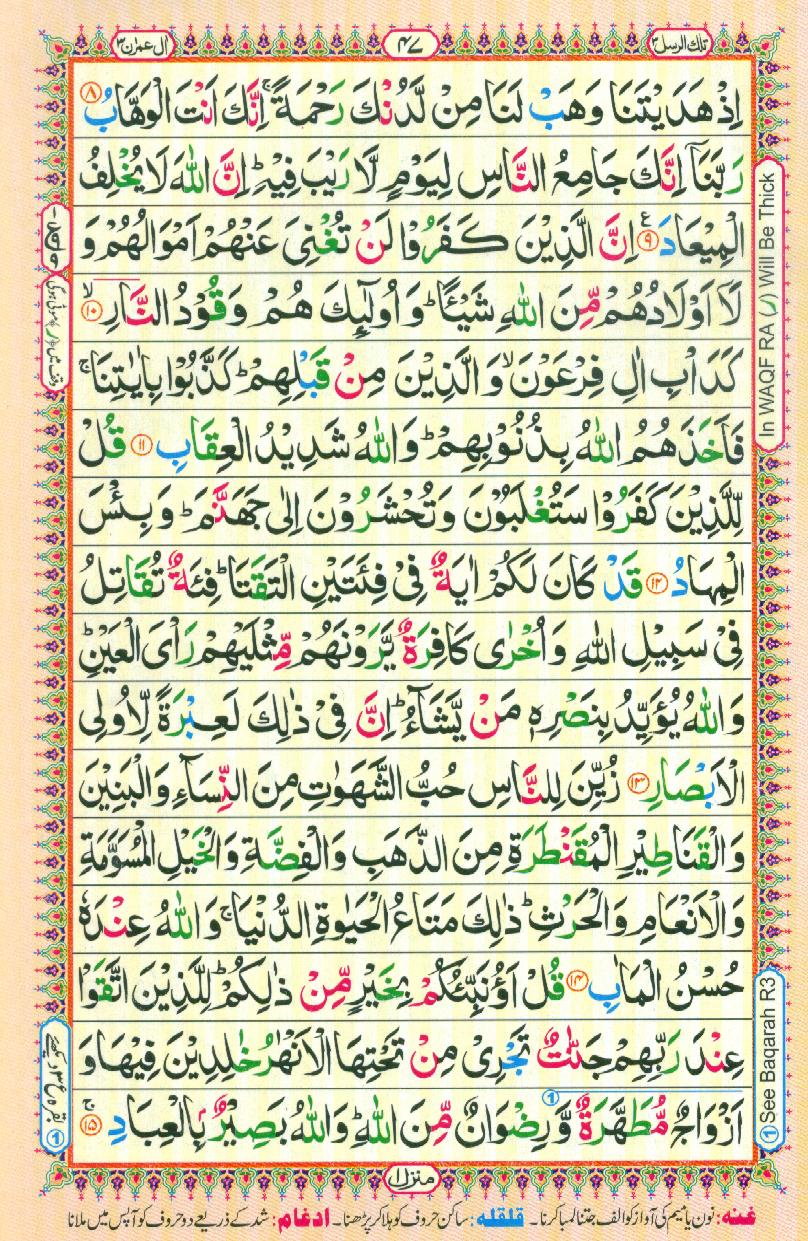 تلك الرسل ٣
٤٧
اٰل عمرٰن ٣
اِذْ هَدَيْتَنَا وَهَبْ لَنَا مِنْ لَّدُنْكَ رَحْمَةً ۚ اِنَّكَ اَنْتَ الْوَهَّابُ ۝٨
رَبَّنَاۤ اِنَّكَ جَامِعُ النَّاسِ لِيَوْمٍ لَّا رَيْبَ فِيْهِ ؕ اِنَّ اللّٰهَ لَا يُخْلِفُ
الْمِيْعَادَ ۝٩ اِنَّ الَّذِيْنَ كَفَرُوْا لَنْ تُغْنِىَ عَنْهُمْ اَمْوَالُهُمْ وَ
لَاۤ اَوْلَادُهُمْ مِّنَ اللّٰهِ شَيْـًٔا ؕ وَ اُولٰٓئِكَ هُمْ وَقُوْدُ النَّارِ ۙ۝١٠
كَدَاْبِ اٰلِ فِرْعَوْنَ ۙ وَ الَّذِيْنَ مِنْ قَبْلِهِمْ ؕ كَذَّبُوْا بِاٰيٰتِنَا ۚ
فَاَخَذَهُمُ اللّٰهُ بِذُنُوْبِهِمْ ؕ وَاللّٰهُ شَدِيْدُ الْعِقَابِ ۝١١ قُلْ
لِّلَّذِيْنَ كَفَرُوْا سَتُغْلَبُوْنَ وَ تُحْشَرُوْنَ اِلٰى جَهَنَّمَ ؕ وَ بِئْسَ
الْمِهَادُ ۝١٢ قَدْ كَانَ لَكُمْ اٰيَةٌ فِىْ فِئَتَيْنِ الْتَقَتَا ؕ فِئَةٌ تُقَاتِلُ
فِىْ سَبِيْلِ اللّٰهِ وَ اُخْرٰى كَافِرَةٌ يَّرَوْنَهُمْ مِّثْلَيْهِمْ رَاْىَ الْعَيْنِ ؕ
وَ اللّٰهُ يُؤَيِّدُ بِنَصْرِهٖ مَنْ يَّشَآءُ ؕ اِنَّ فِىْ ذٰلِكَ لَعِبْرَةً لِّاُولِى
الْاَبْصَارِ ۝١٣ زُيِّنَ لِلنَّاسِ حُبُّ الشَّهَوٰتِ مِنَ النِّسَآءِ وَالْبَنِيْنَ
وَالْقَنَاطِيْرِ الْمُقَنْطَرَةِ مِنَ الذَّهَبِ وَالْفِضَّةِ وَالْخَيْلِ الْمُسَوَّمَةِ
وَالْاَنْعَامِ وَالْحَرْثِ ؕ ذٰلِكَ مَتَاعُ الْحَيٰوةِ الدُّنْيَا ۚ وَ اللّٰهُ عِنْدَهٗ
حُسْنُ الْمَاٰبِ ۝١٤ قُلْ اَؤُنَبِّئُكُمْ بِخَيْرٍ مِّنْ ذٰلِكُمْ ؕ لِلَّذِيْنَ اتَّقَوْا
عِنْدَ رَبِّهِمْ جَنّٰتٌ تَجْرِىْ مِنْ تَحْتِهَا الْاَنْهٰرُ خٰلِدِيْنَ فِيْهَا وَ
اَزْوَاجٌ مُّطَهَّرَةٌ وَّ رِضْوَانٌ ① مِّنَ اللّٰهِ ؕ وَ اللّٰهُ بَصِيْرٌۢ بِالْعِبَادِ ۚ۝١٥
In WAQF RA (ر) Will Be Thick
① See Baqarah R3
منزل ١
غنه: نون یا میم کی آواز کو الف جتنا لمبا کرنا۔ قلقله: ساکن حروف کو ہلا کر پڑھنا۔ ادغام: شد کے ذریعے دو حروف کو آپس میں ملانا